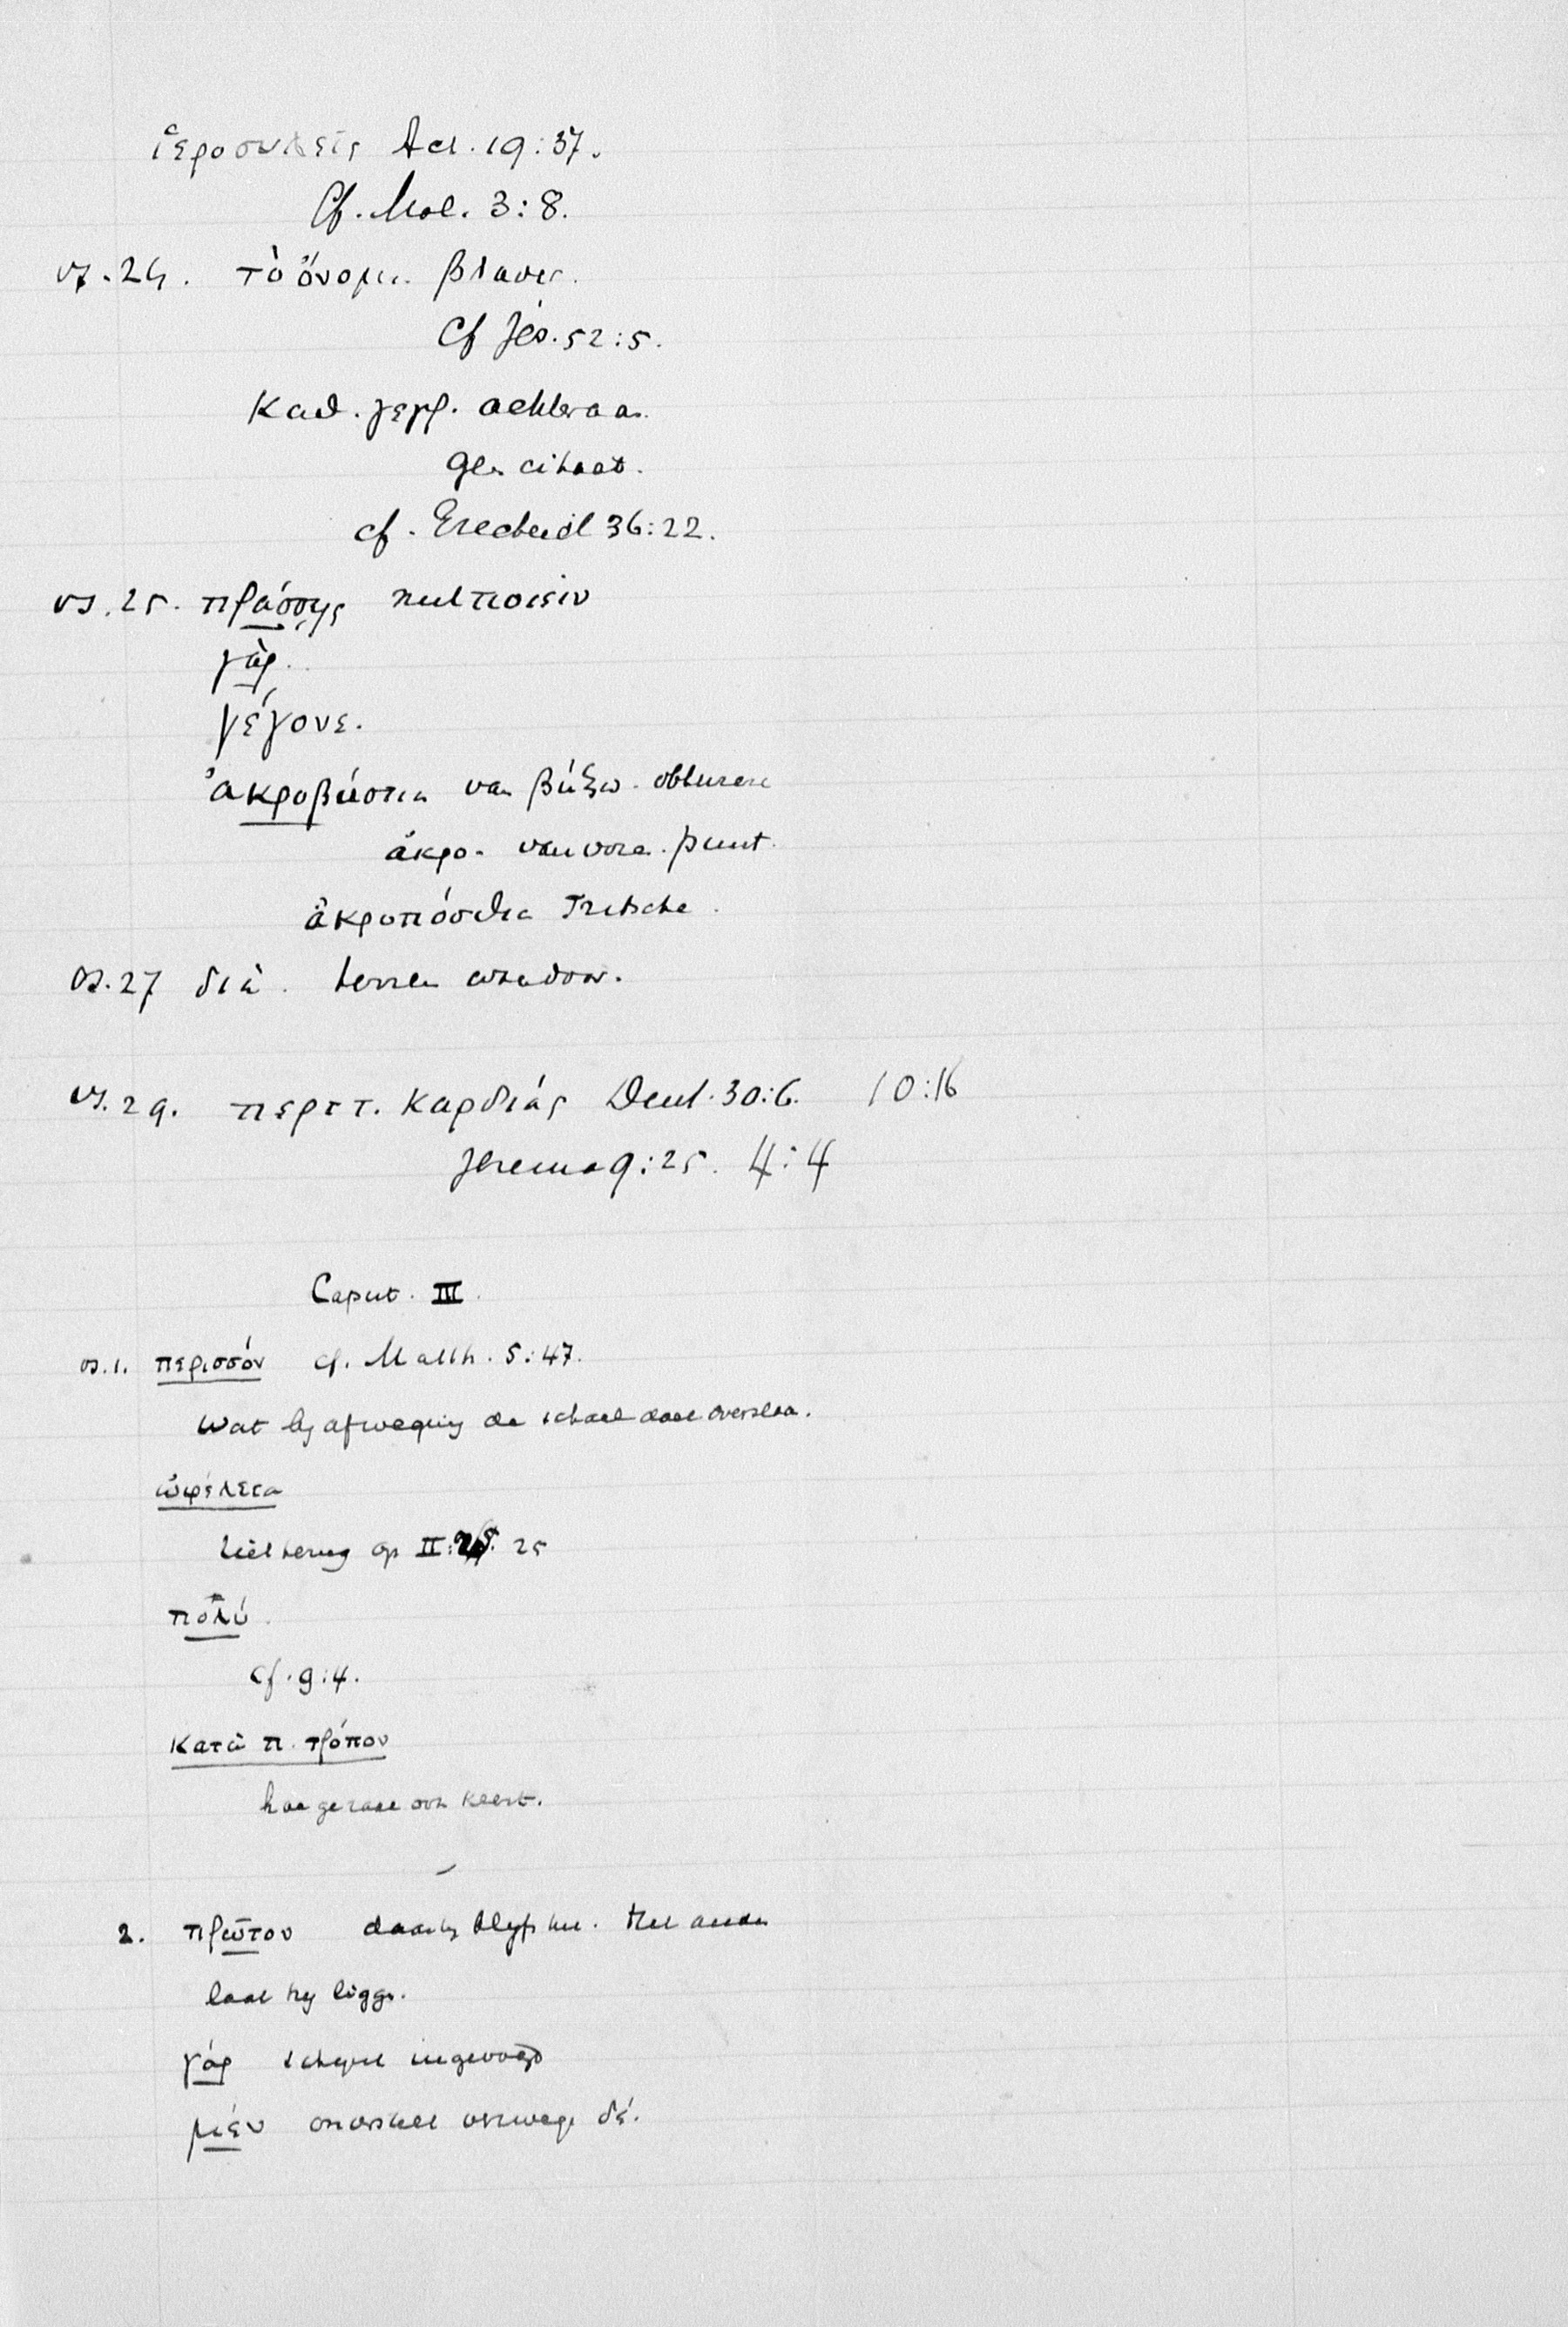 ἱεροσυλεῖς Act. 19:37.
Cf. Mal. 3:8.
vs. 24. τὸ ὄνομα βλασφ.
Cf Jes. 52:5.
Καθ. γεγρ. achteraan.
Geen citaat.
cf. Ezechiël 36:22.
vs. 25. πράσσῃς niet ποιεῖν
γάρ.
γέγονε.
ἀκροβυστία van βύζω obturare
ἄκρο- punt
ἀκροποσθία Fritsche.
vs. 27 διά.
vs. 29. περιτ. καρδίας Deut. 30:6. 10:16
Jeremia 9:25. 4:4
Caput. III.
vs. 1. περισσόν cf. Matth. 5:47.
Wat bij afweging de schaal doet overslaan.
ὠφέλεια
ziet terug op II: 25
πολύ.
cf. 9:4.
Κατὰ π. τρόπον
hoe ge haar ook keert.
2. πρῶτον daarbij blijft het. Het andere
laat hij liggen.
γάρ schijnt ingevoegd
μέν onderstelt δέ.